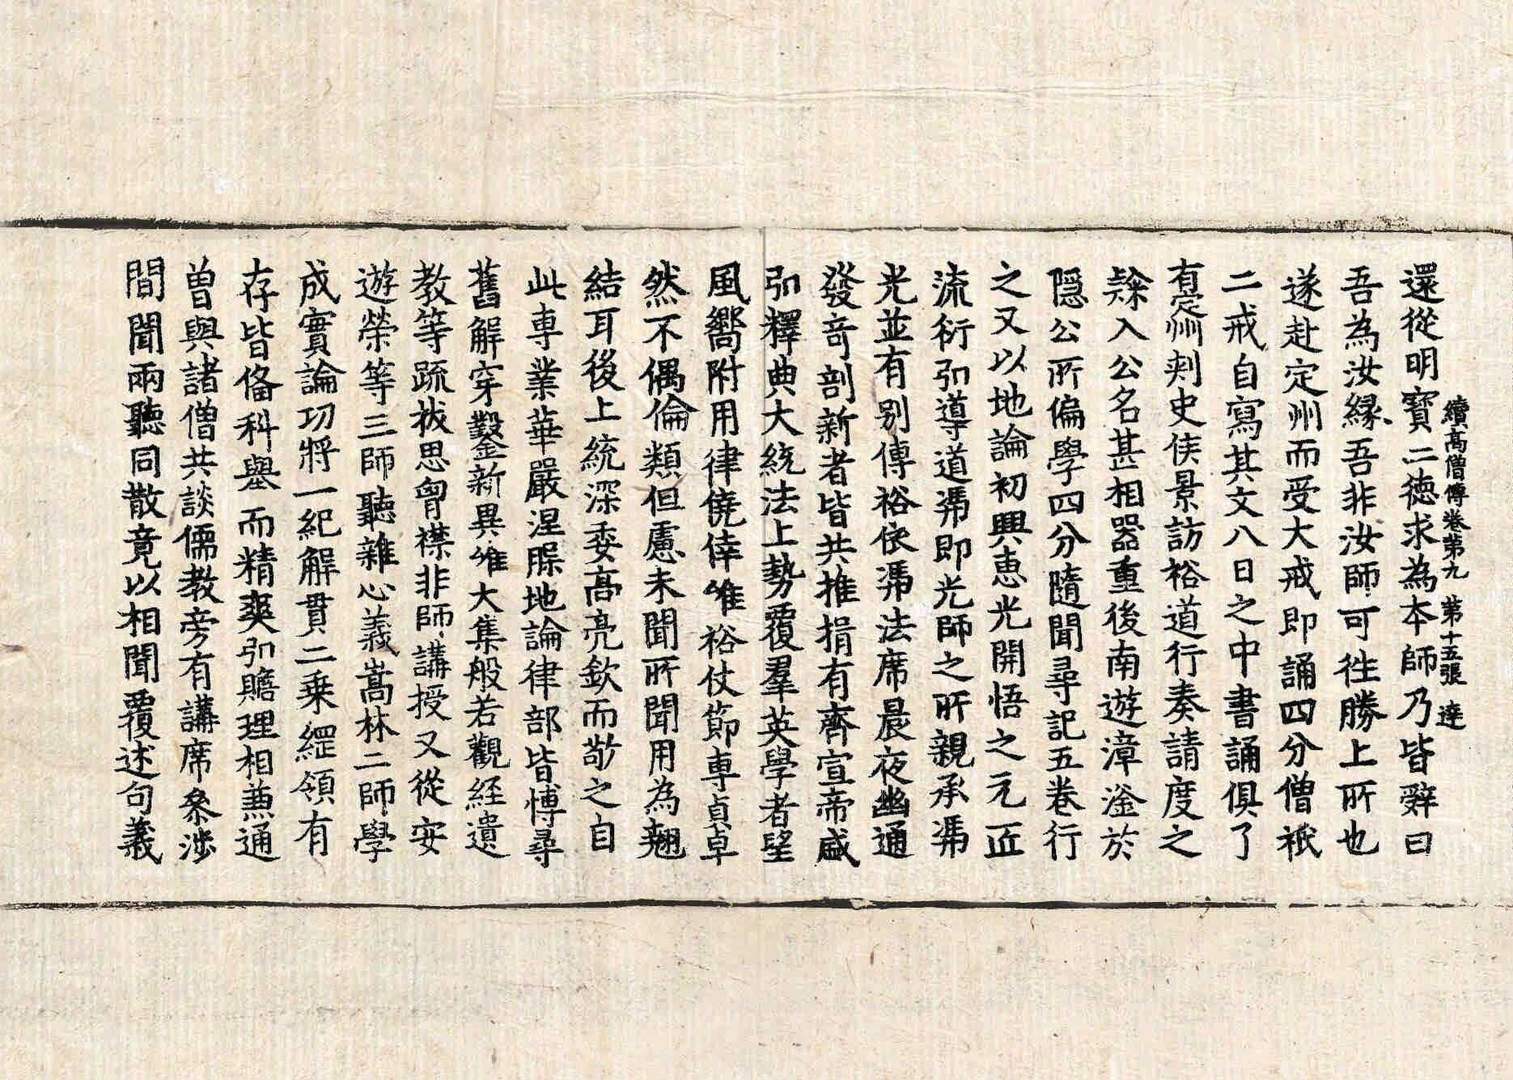 續高僧傳卷第九　第十五張　達
還從明寳二德求為本師乃皆辤曰
吾為汝縁吾非汝師可徃勝上所也
遂赴定州而受大戒即誦四分僧祇
二戒自寫其文八日之中書誦俱了
有定州刾史侯景訪裕道行奏請度之
𨽻入公名甚相器重後南遊漳滏於
隱公所偏學四分隨聞尋記五卷行
之又以地論初興恵光開悟之元匠
流衍引導道馮即光師之所親承馮
光並有别傳裕依馮法席晨夜幽通
發竒剖新者皆共推揖有齊宣帝盛
引釋典大統法上勢覆羣英學者望
風嚮附用律僥倖唯裕仗節專貞卓
然不偶倫類但慮未聞所聞用為翹
結耳後上統深委高亮欽而敬之自
此専業華嚴涅槃地論律部皆博尋
舊解穿鑿新異唯大集般若觀經遺
教等疏拔思胷襟非師講授又從安
遊榮等三師聽雜心義嵩林二師學
成實論功將一紀解貫二乗綱領有
存皆俻科舉而精爽引贍理相兼通
曽與諸僧共談儒教旁有講席叅涉
間聞兩聽同散竟以相聞覆述句義